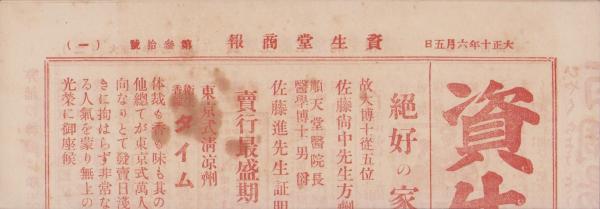 大正十年六月五日
資生堂商報
第參拾號
(一)
資生
絕好の家
故大博士従五位
佐藤尙中先生方劑
順天堂醫院長
醫學博士男爵
佐藤進先生証明
賣行最盛期
東京式淸凉劑
タイム
体裁も香も味も其の
他總てが東京式萬人
向なりとて發賣日淺
きに拘はらず非常な
る人氣を蒙り無上の
光榮に御座候